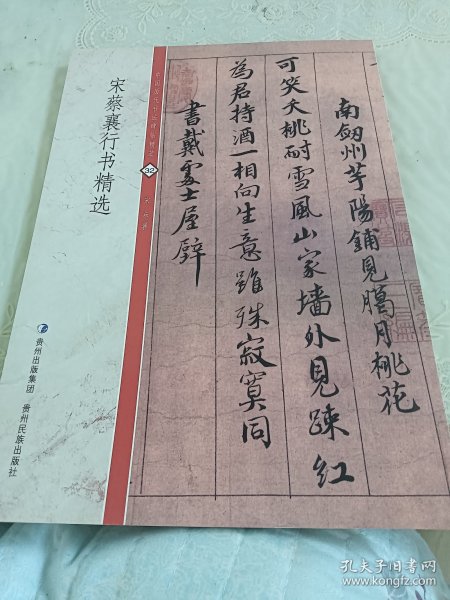 南劔州芋陽鋪見臈月桃花
可笑夭桃耐雪風山家墻外見踈紅
為君持酒一相向生意雖殊寂寞同
書戴處士屋壁
32
宋蔡襄行书精选
贵州出版集团 贵州民族出版社
孔夫子旧书网
www.kongfz.com